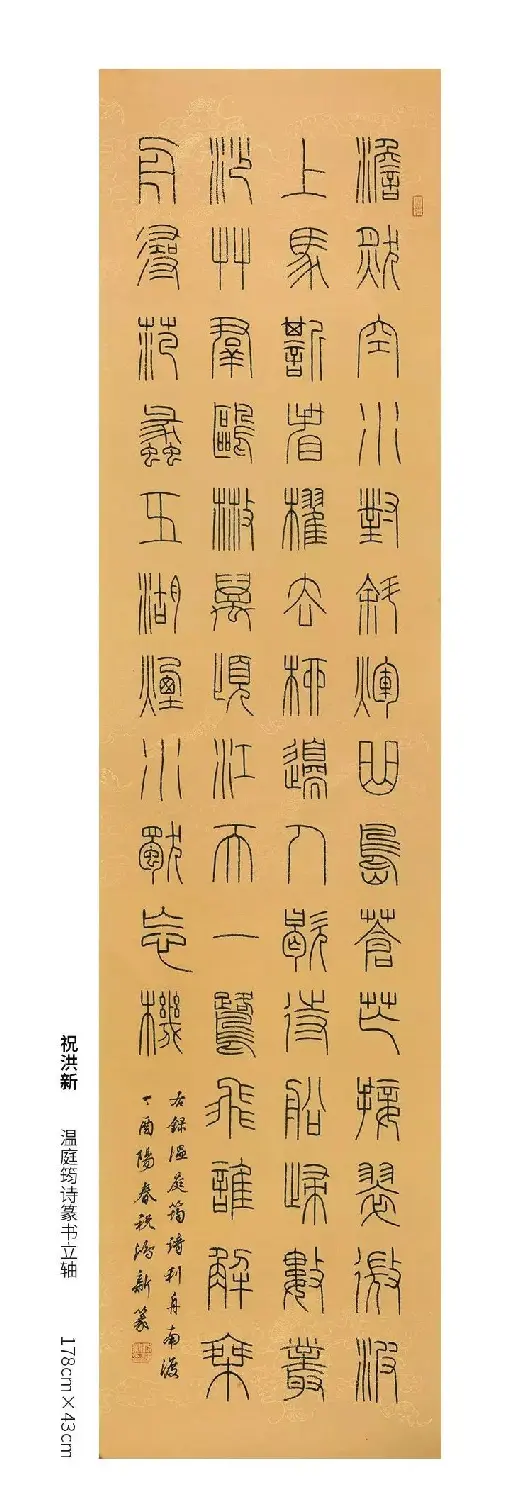 澹然空水對斜煇曲島蒼芒接翠微波
上馬嘶看櫂去柳邊人歇待船歸數叢
沙艸羣鷗散萬頃江天一鷺飛誰解乘
舟尋范蠡五湖煙水獨忘機
右録溫庭筠詩利舟南渡
丁酉陽春祝鴻新篆
祝洪新 温庭筠诗篆书立轴 178cm×43cm